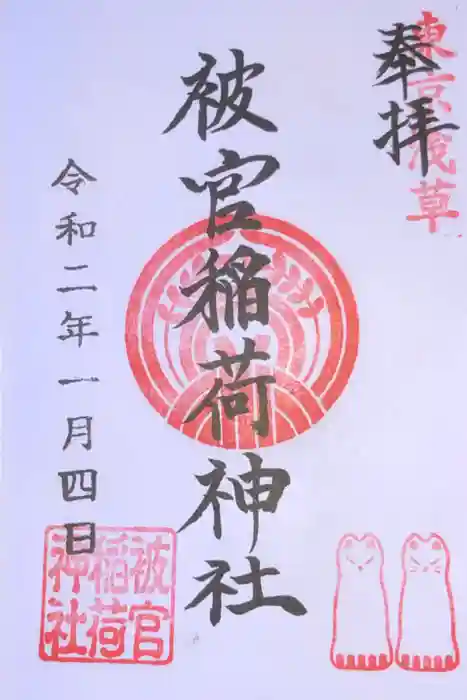 東京浅草
奉拝
被官稲荷神社
令和二年一月四日
被官
稲荷
神社